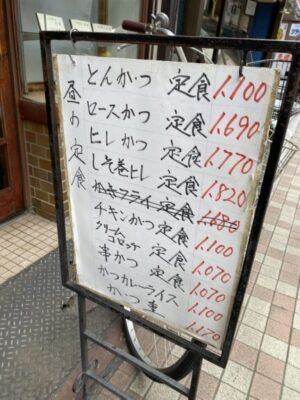 昼の定食
とんかつ 定食 1,100
ロースかつ 定食 1,690
ヒレかつ 定食 1,770
しそ巻ヒレ 定食 1,820
カキフライ定食 1,680
チキンかつ定食 1,100
クリームコロッケ 定食 1,070
串かつ 定食 1,070
かつカレーライス 1,100
かつ重 1,170